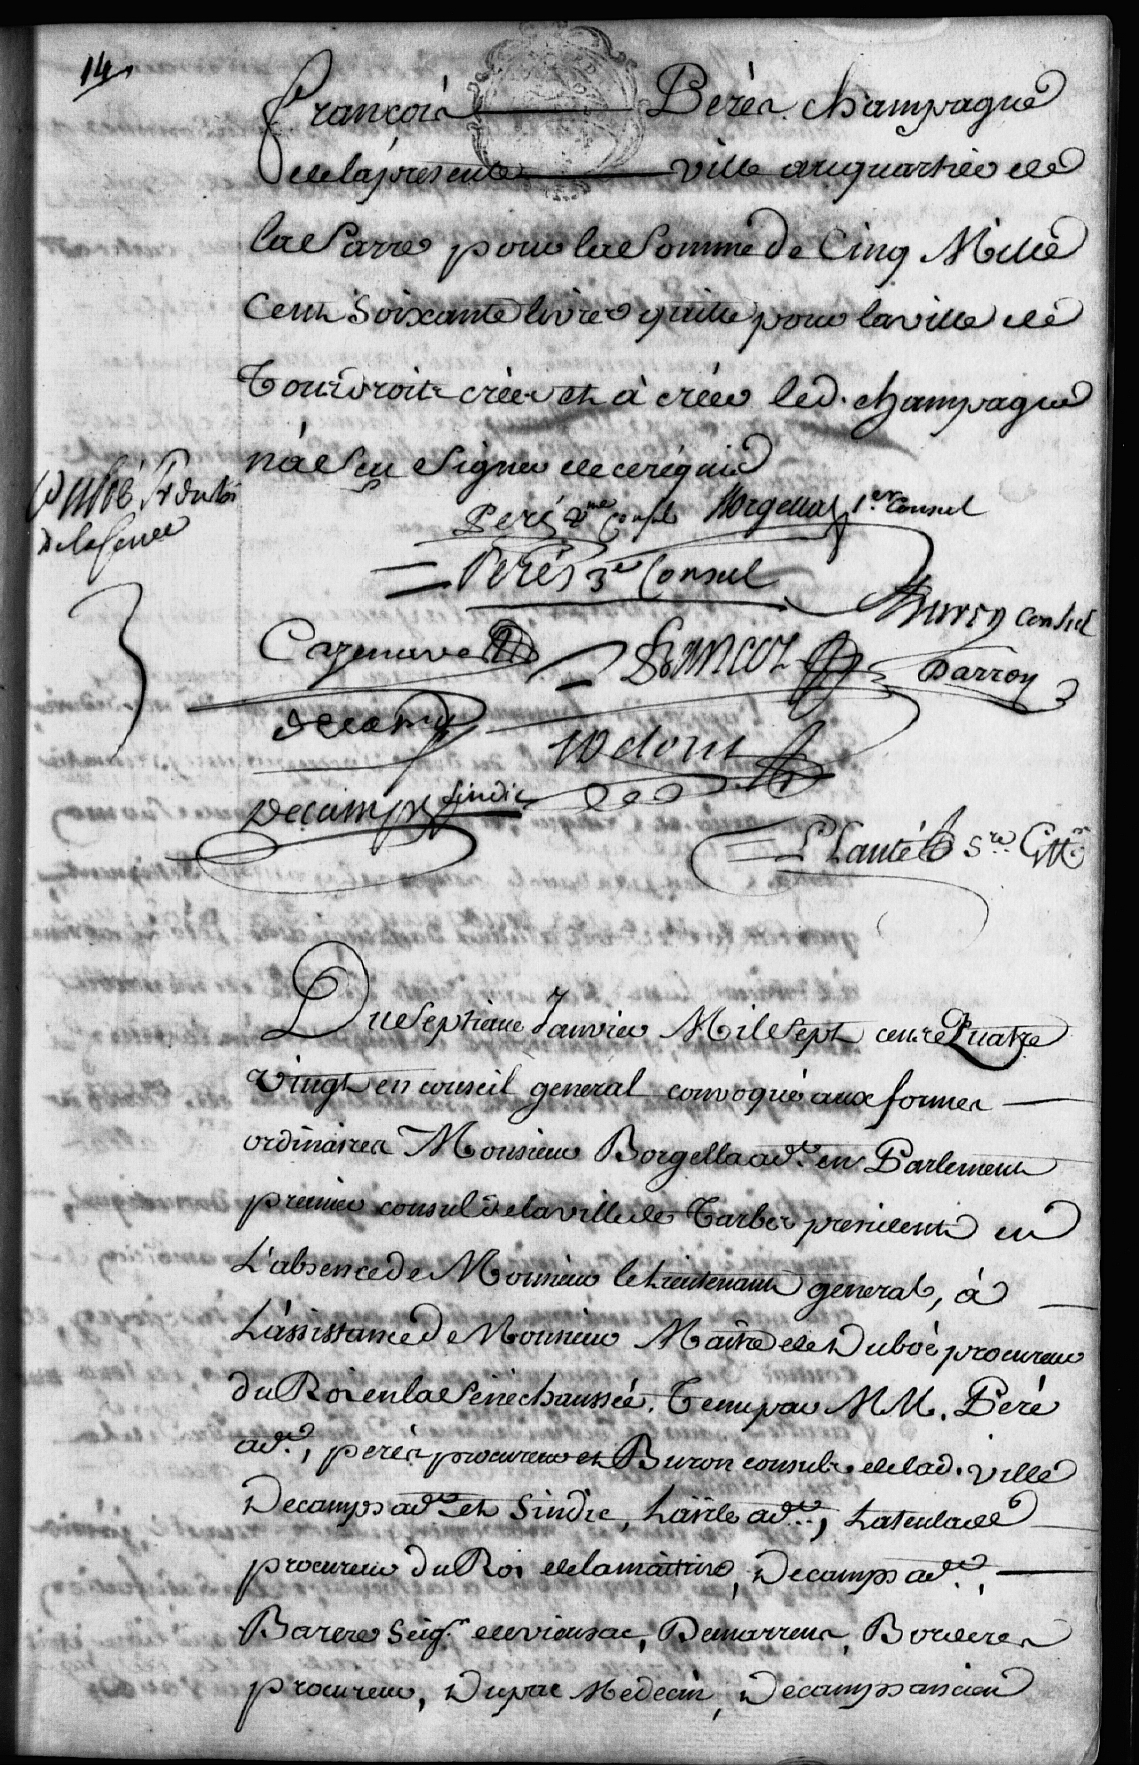 14
françois Perés champagne
de la presente ville au quartier de
la Sarre pour la Somme de Cinq Mille
Cent Soixante livres quitte pour la ville de
Tout droits créer et à créer led. champagne
n'a Seu Signer de ce réquis
Dubòé Pr du Roi
Peré 2me Consul Borgella 1er Consul
Perés 3e Consul
Buron Consul
Cazenave Darroy
Decamps
Decamps Sindic
Planté Sre Gre
Du Septiéme Janvier Mil Sept cent Quatre
Vingt en conseil general convoqué aux formes
ordinaires Monsieur Borgella adt. en Parlement
premier consul de la ville de Tarbes president en
L'absence de Monsieur le Lieutenant general, à
L'assistance de Monsieur Maître de Duboé procureur
du Roi en la Sénéchaussée. Tenu par MM. Peré
adt., perés procureur et Buron consuls de lad. ville
Decamps adt. et Sindic, adt.,
procureur du Roi de la maitrise, Decamps adt.,
Barere Seigr. de viousac, Bordères
procureur, Dupac Medecin, Decamps ancien